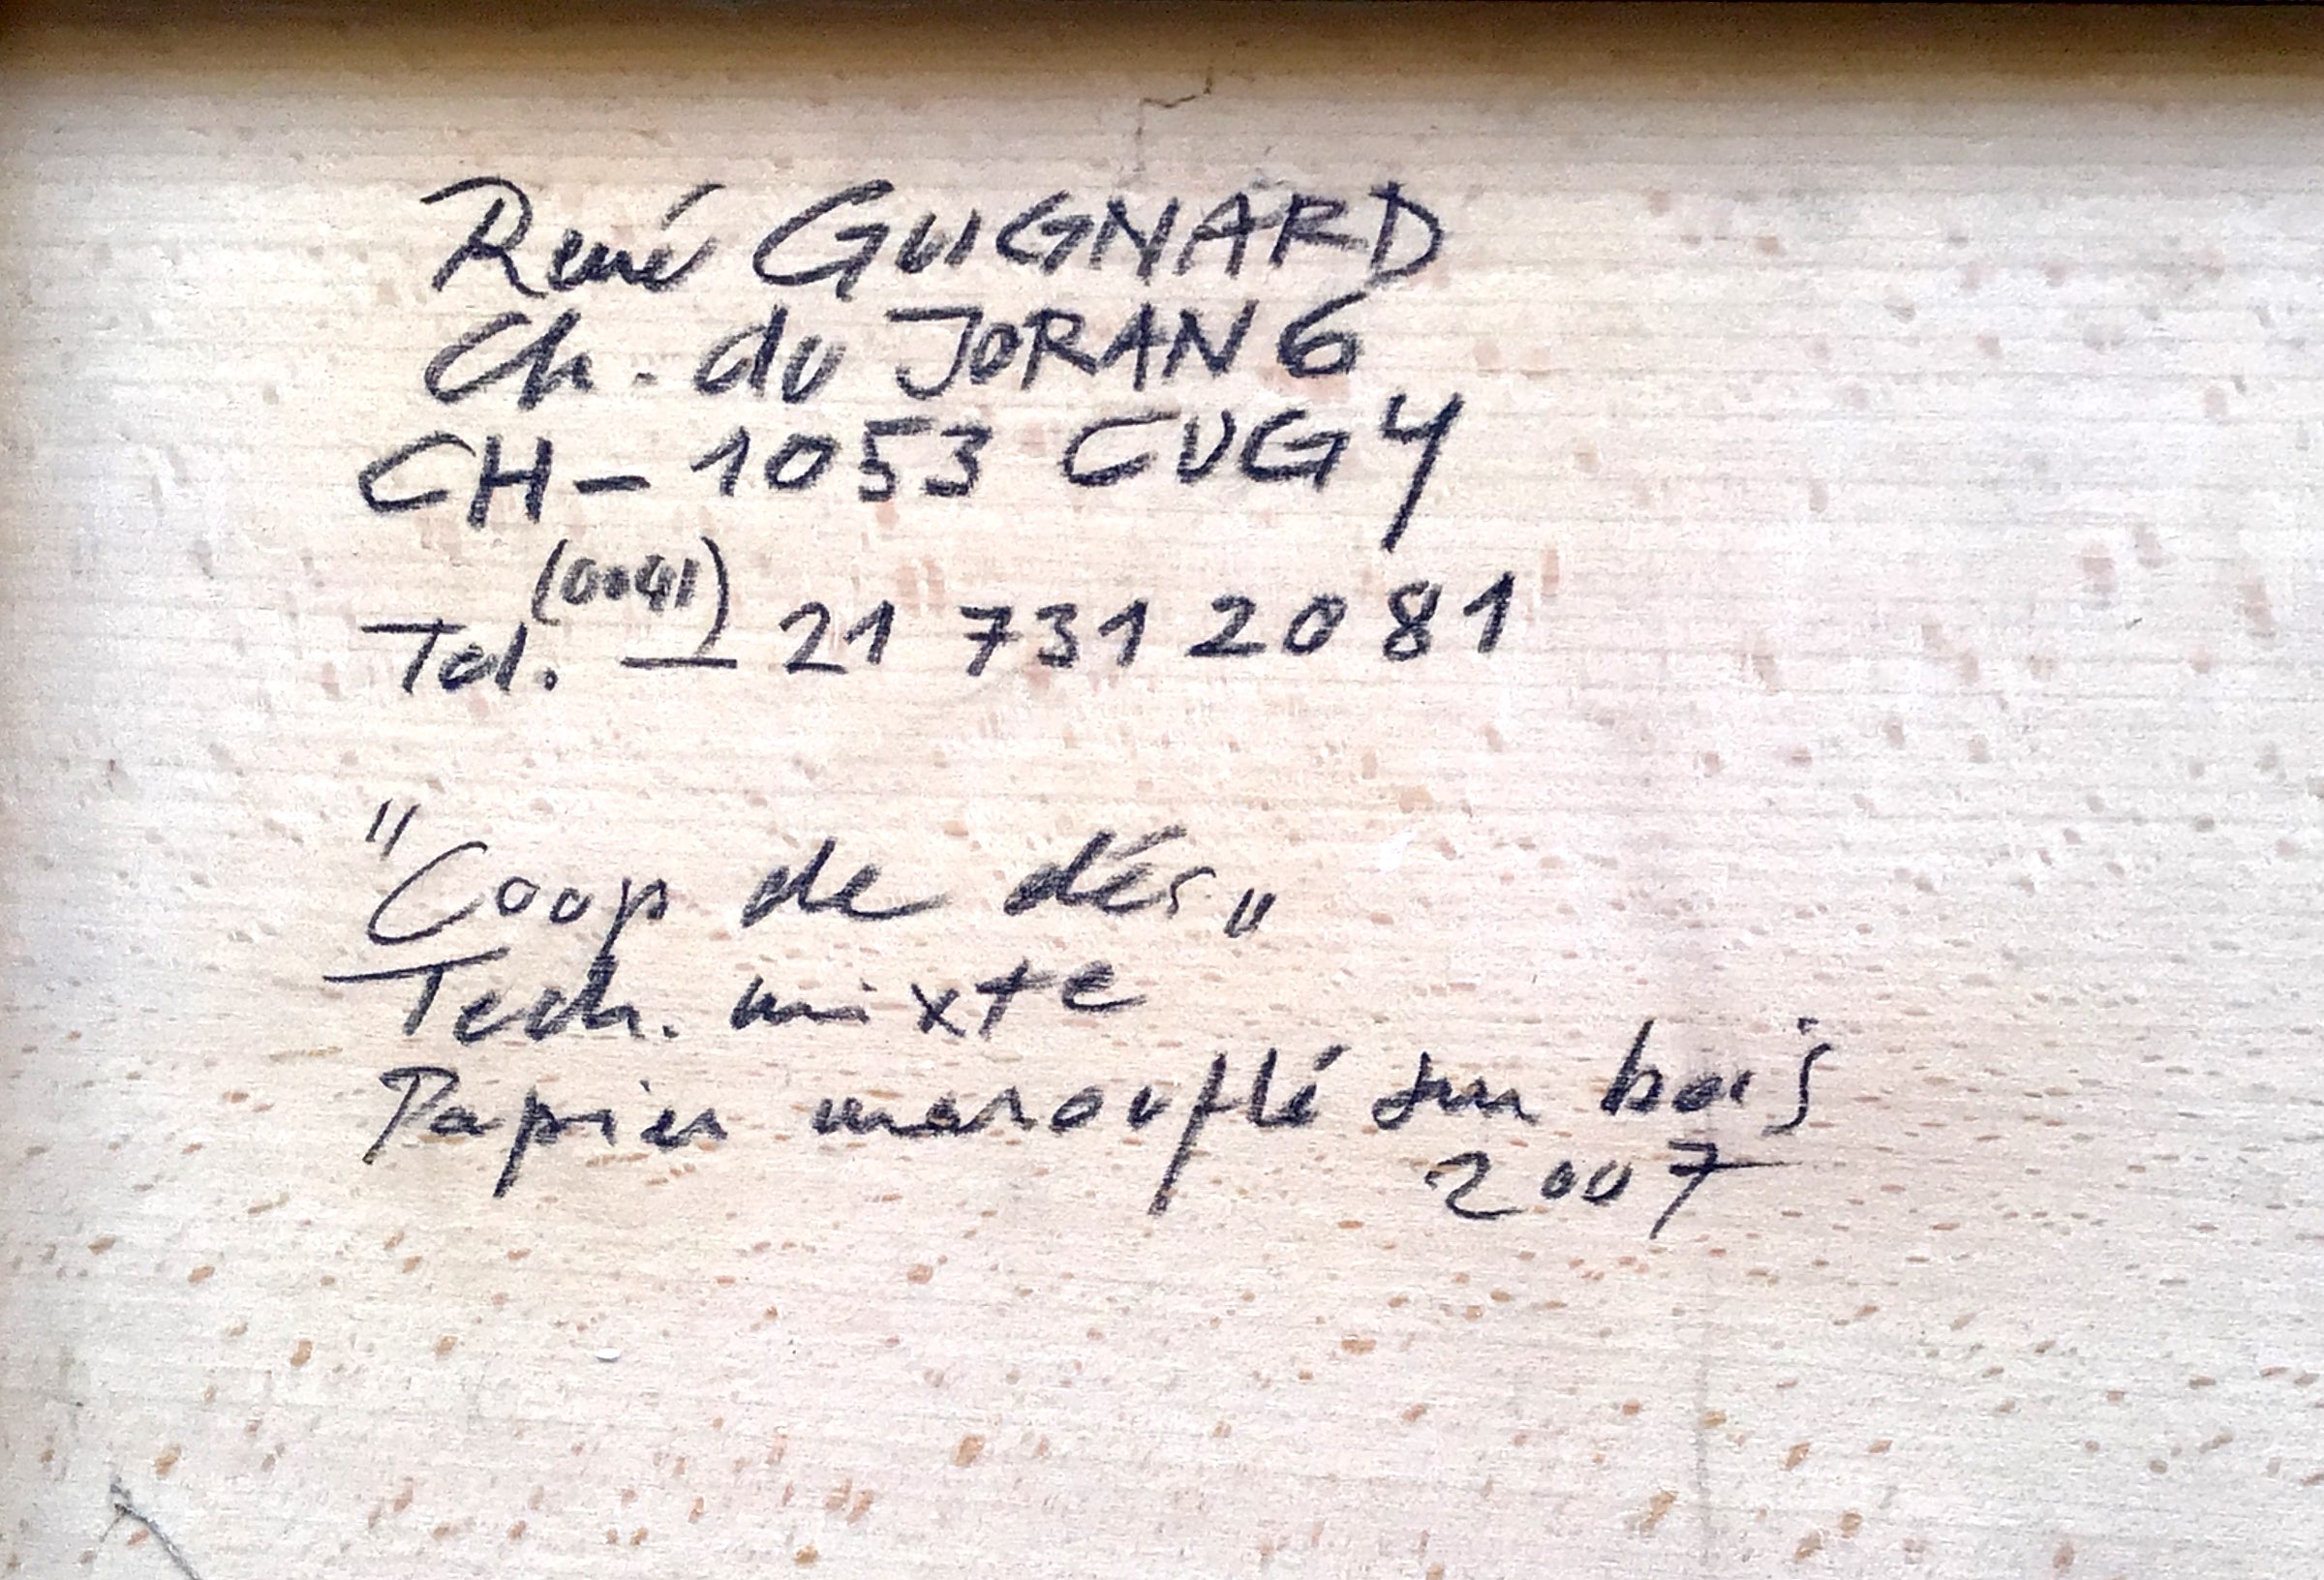 René GUIGNARD
Ch. du JORAN 6
CH - 1053 CUGY
(0041)
Tel. — 21 731 20 81
"Coup de dés"
Tech. mixte
Papier marouflé sur bois
2007